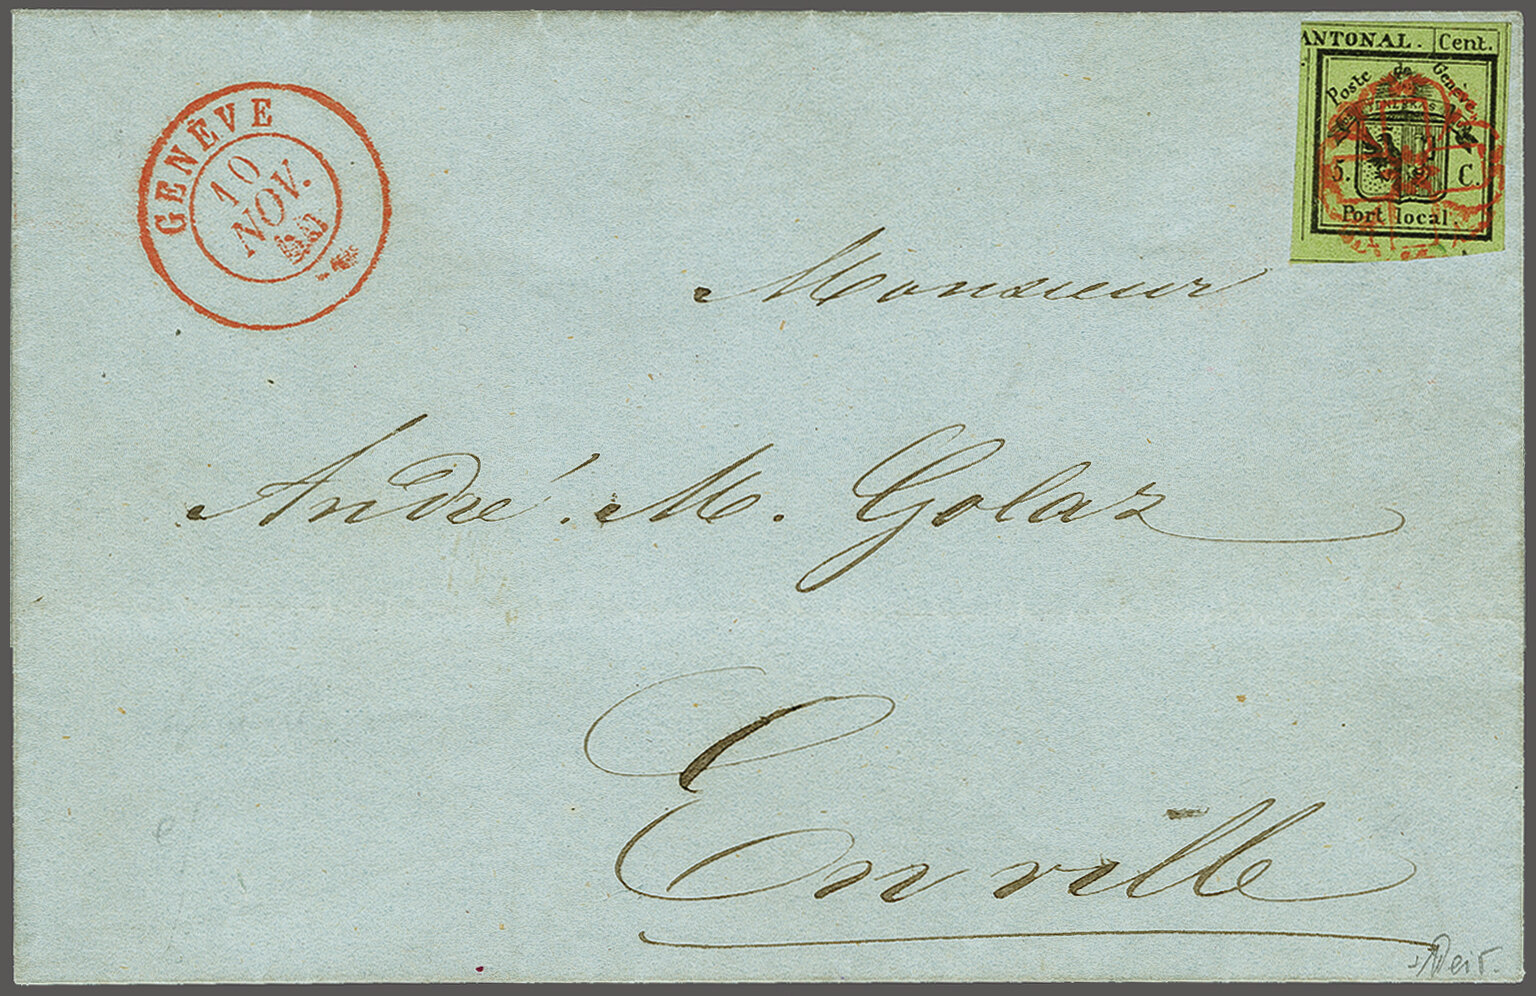 GENÈVE
10
NOV.
ANTONAL. Cent.
Poste de Genève
5. C.
Port local.
Monsieur
André. M. Golaz
En ville